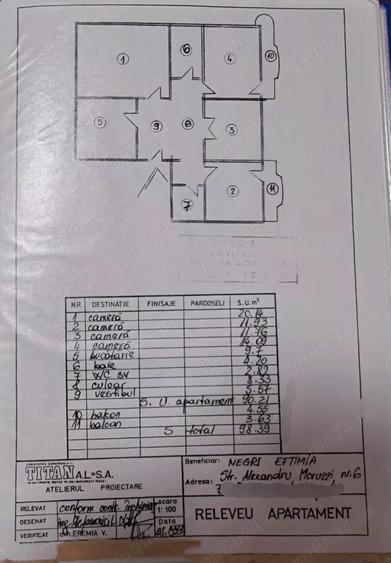 1
6
4
10
5
9
8
3
7
2
11
NR DESTINATIE FINISAJE PARDOSELI S.U. m²
1 cameră 20.14
2 cameră 11.93
3 cameră 11.76
4 cameră 14.09
5 bucatarie 9.7
6 baie 4.20
7 W/C sv 2.82
8 culoar 8.33
9 vestibul
S. U. apartament 90.21
10 balcon 4.55
11 balcon 3.63
S total 98.39
TITAN A.L. S.A.
ATELIERUL PROIECTARE
Beneficiar: NEGRI EFTIMIA
Adresa: Str. Alexandru Moruzzi, nr. 6
7
RELEVAT conform scara
DESENAT 1: 100
VERIFICAT EREMIA V. Data
RELEVEU APARTAMENT